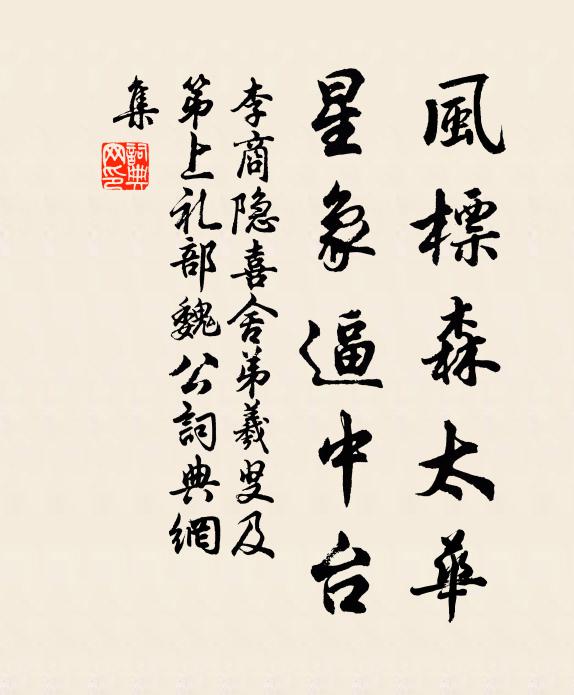 風標森太華
星象逼中台
李商隐喜舍弟羲叟及
第上礼部魏公詞典網
集
詞典
网印